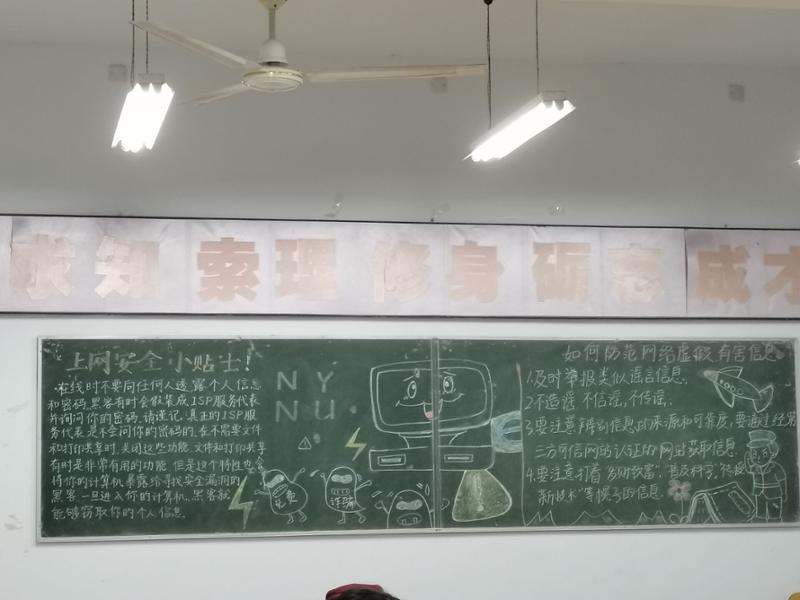 求知 索理 修身 砺志 成才
上网安全小贴士!
·在线时不要向任何人透露个人信息
和密码。黑客有时会假装成ISP服务代表
并询问你的密码。请谨记,真正的ISP服
务代表是不会问你的密码的。在不需要文件
和打印共享时,关闭这些功能。文件和打印共享
有时是非常有用的功能,但是这个特性也会
将你的计算机暴露给寻找安全漏洞的
黑客。一旦进入你的计算机,黑客就
能够窃取你的个人信息。
N Y
N U
诈骗
如何防范网络虚假、有害信息
1.及时举报类似谣言信息。
2.不造谣,不信谣,不传谣。
3.要注意辨别信息的来源和可靠度,要通过经第
三方可信网站认证的网站获取信息。
4.要注意打着"发财致富","普及科学,传授
新技术"等幌子的信息